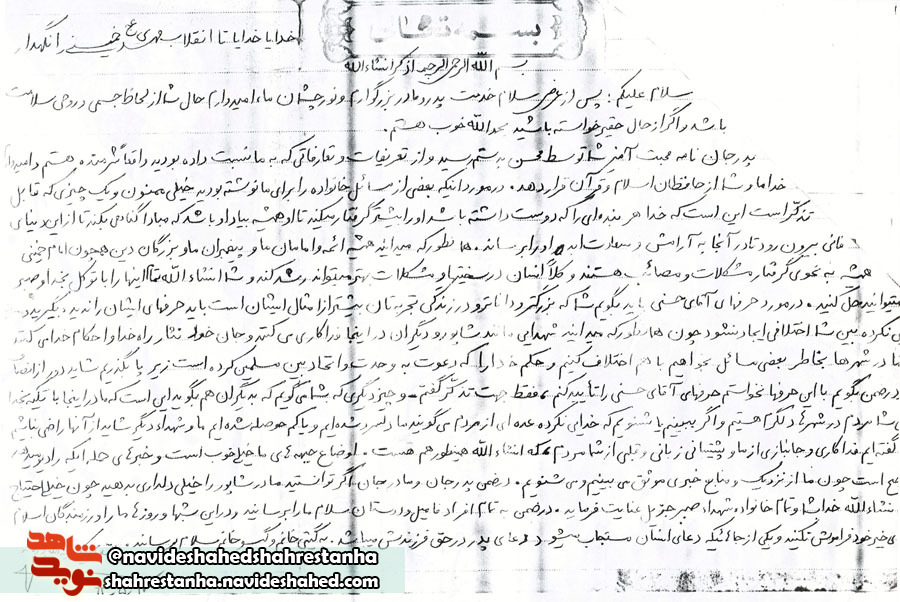 بسمه تعالی
خدایا خدایا تا انقلاب مهدی عج خمینی را نگهدار
بسم الله الرحمن الرحیم
سلام علیکم: پس از عرض سلام خدمت پدر و مادر بزرگوارم و نور چشمان ما، امیدوارم حال شما از لحاظ جسمی و روحی سلامت
باشد و اگر از حال حقیر خواسته باشید بحمد الله خوب هستم.
پدر جان نامه محبت آمیز شما توسط محسن بدستم رسید و از تعریفات و تعارفاتی که به ما نسبت داده بودید واقعاً شرمنده هستم و امیدوارم
خدا ما و شما از حافظان اسلام و قرآن قرار دهد. در مورد اینکه بعضی از مسائل خانواده را برای ما نوشته بودید خیلی ممنون و یک چیزی که قابل
تذکر است این است که خدا هر بنده‌ای را که دوست داشته باشد او را بیشتر گرفتار میکند تا او همیشه بیاد او باشد که مبادا گناهی بکند تا از این دنیای
فانی بیرون رود تا در آنجا به آرامش و سعادت ابد او را برساند. همانطور که میدانید همیشه ائمه و امامان ما و پیغمبران ما و بزرگان دین همچون امام خمینی
همیشه به نحوی گرفتار مشکلات و مصائب هستند و کلاً انسان در سختیها و مشکلات بهتر میتواند رشد کند و شما انشاء الله تعالی اینها را با توکل بخدا و صبر
میتوانید حل کنید. در مورد حرفهای آقای حسنی باید بگویم شما که بزرگتر و داناتر و در زندگی تجربتان بیشتر از امثال ایشان است باید حرفهای ایشان را ندیده بگیرید
نکرده بین شما اختلافی ایجاد نشود چون همانطور که میدانید شهدایی مانند شاپور و دیگران در اینجا فداکاری می کنند و جان خود نثار راه خدا و احکام خدا می کنند
در شهرها بخاطر بعضی مسائل بخواهیم با هم اختلاف کنیم و حکم خدا را که دعوت به وحدت و اتحاد بین مسلمین کرده است زیر پا بگذریم شاید دور از انصاف
در ضمن بگویم با این حرفها نخواستم حرفهای آقای حسنی را تأیید کنم، فقط جهت تذکر گفتم. و چیز دیگری که بشما می گویم که به دیگران هم بگویید این است که ما در اینجا با تکیه بخدا
شما مردم در شهرها دلگرم هستیم و اگر ببینیم یا بشنویم که خدایی نکرده عده ای از مردم می گویند ما دلسرد شده ایم و یا کم حوصله شده ایم ما و شهداء دیگر شاید از آنها راضی نباشیم
گفته ایم فداکاری و جانبازی از ما و پشتیبانی زبانی و قلبی از شما مردم که انشاء الله همینطور هم هست. اوضاع جبهه های ما خیلی خوب است و خبرهای حمله ایکه رادیو میدهد
صحیح است چون ما از نزدیک و منابع خبری موثق می بینیم و می شنویم. در ضمن پدر جان و مادر جان اگر توانستید مادر شاپور را خیلی دلداری بدهید چون خیلی احتیاج
انشاء الله خدا شما و تمام خانواده شهداء صبر جزیل عنایت فرماید. در ضمن به تمام افراد فامیل و دوستان سلام ما را برسانید و در این شبها و روزها ما را و رزمندگان اسلام
دعای خیر خود فراموش نکنید و یکی از جاهائیکه دعای انسان مستجاب میشود دعای پدر در حق فرزندش میباشد. به خانم و خانم سلام برسانید.
نوید شاهد
@navideshahedshahrestanha
shahrestanha.navideshahed.com